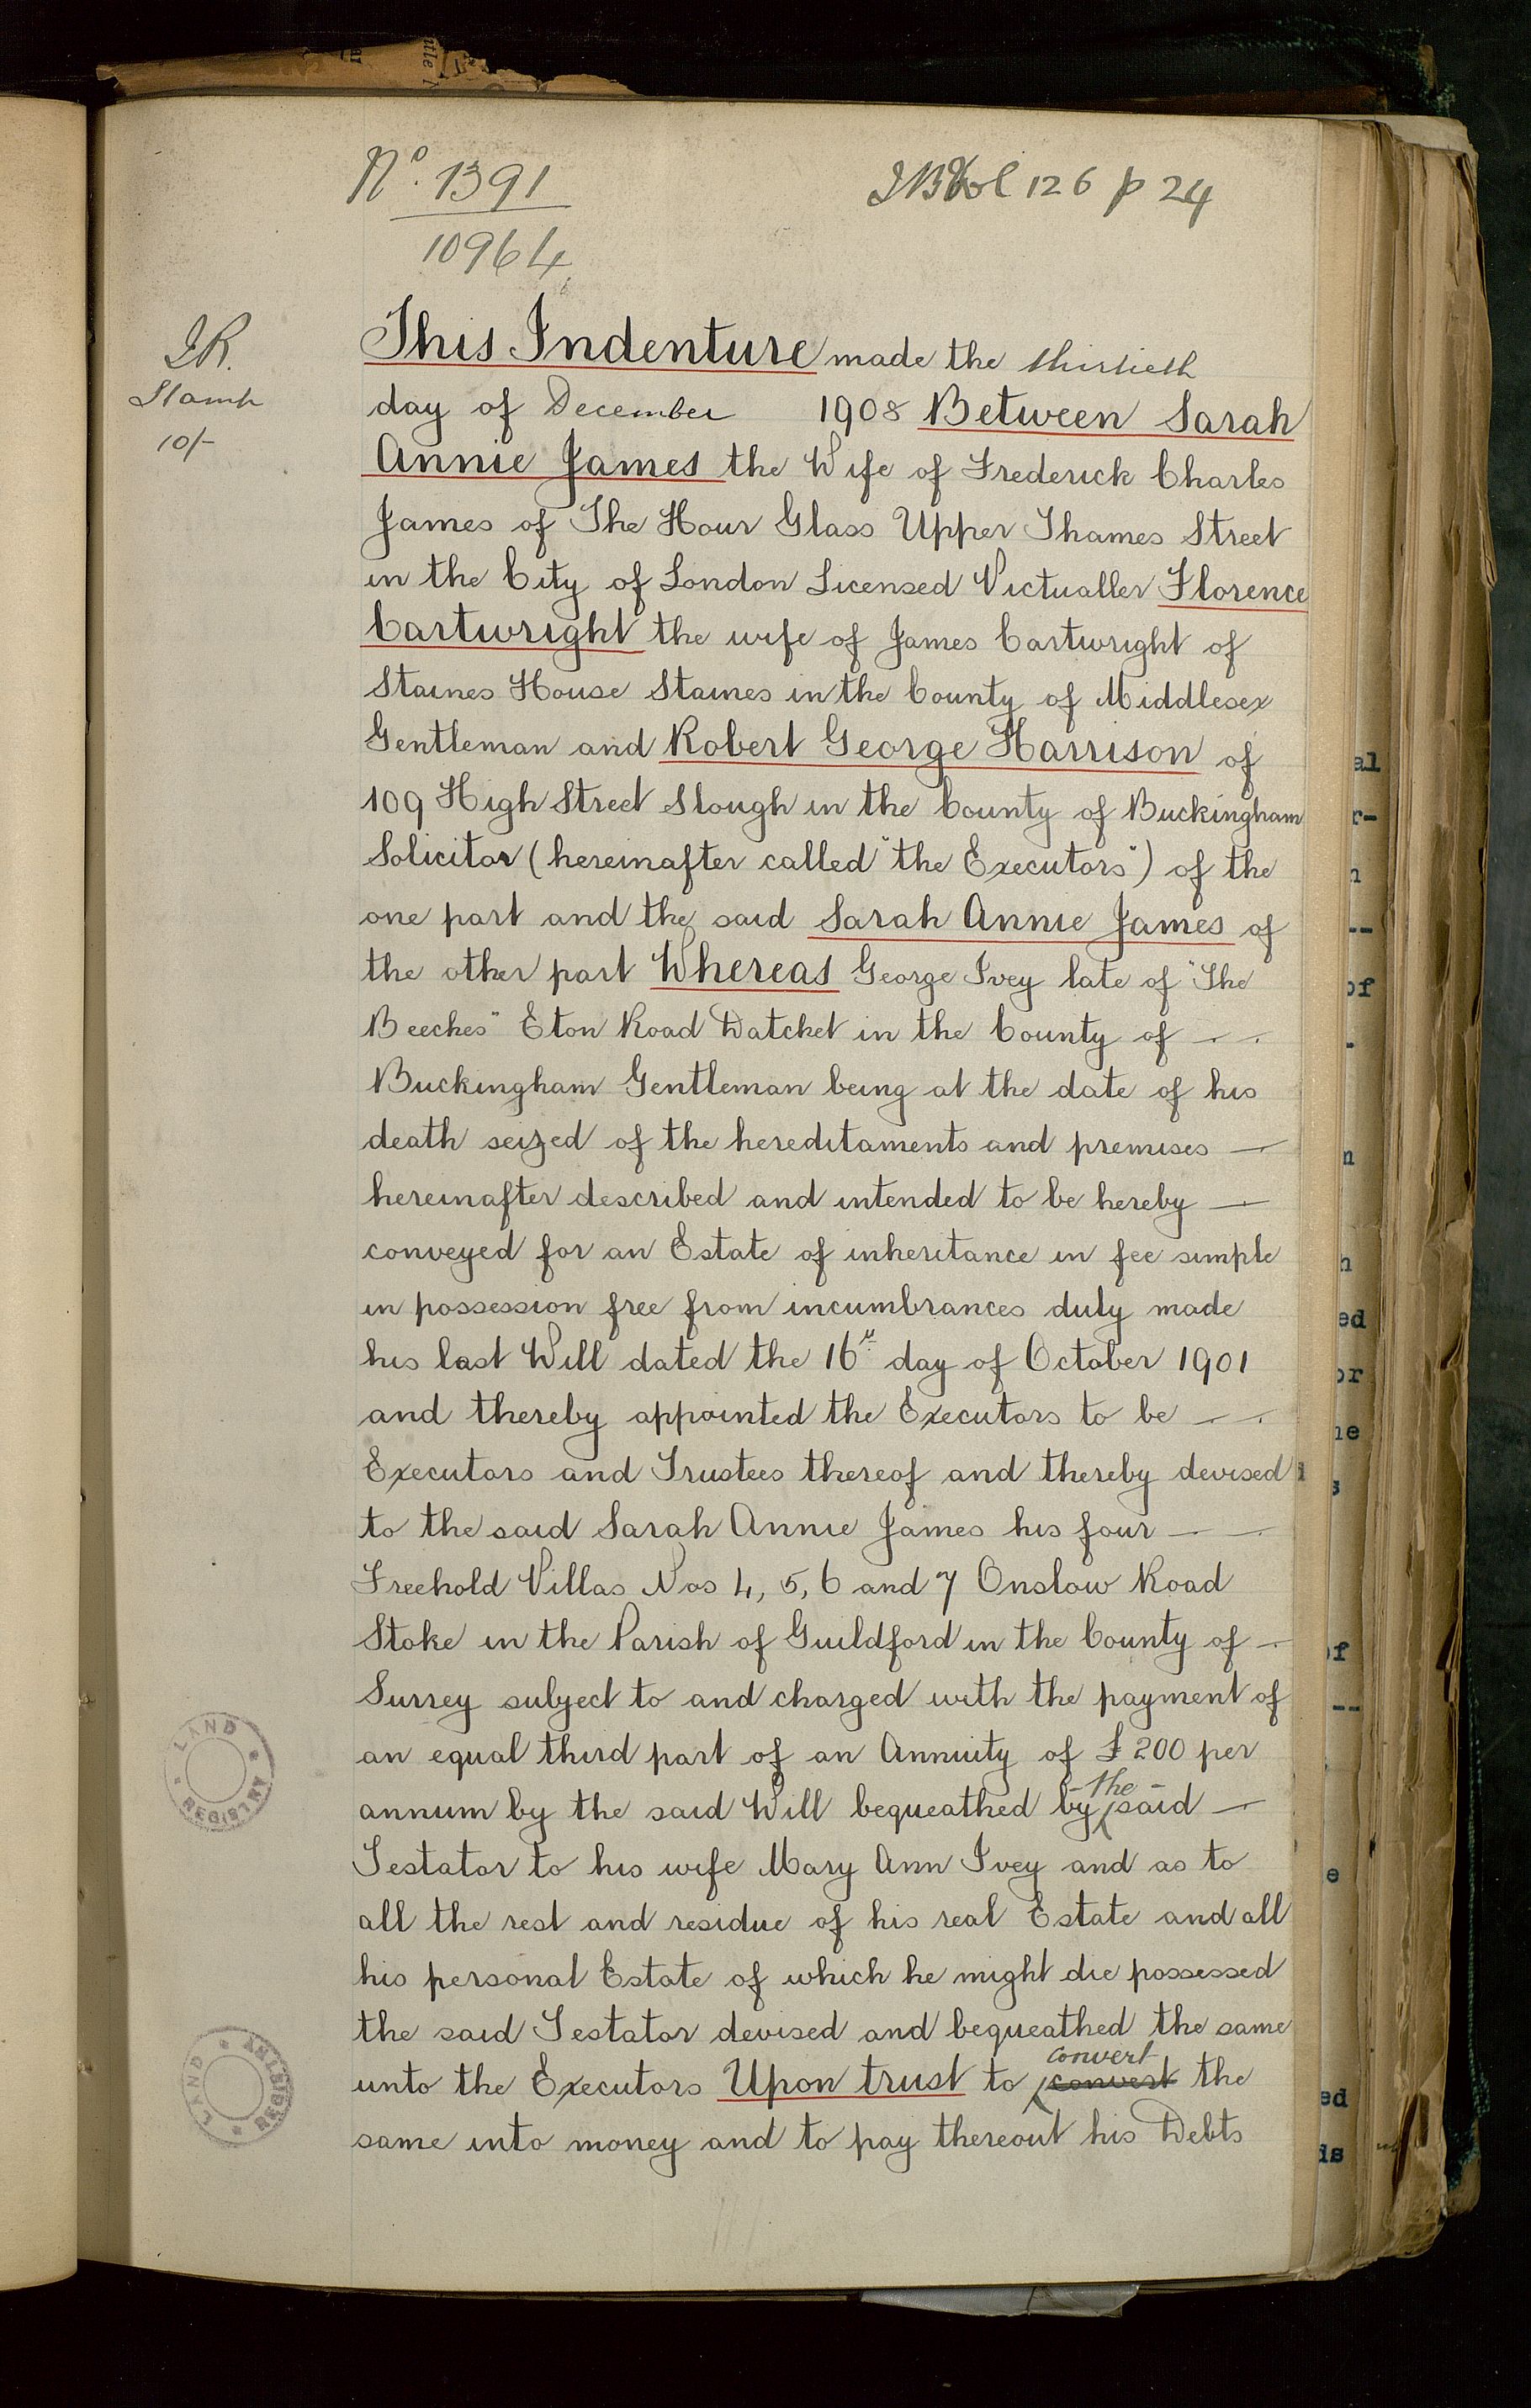 No. 1391
10964
Vol 126 p 24
I R.
Stamp
10/-
This Indenture made the thirtieth
day of December 1908 Between Sarah
Annie James the Wife of Frederick Charles
James of The Hour Glass Upper Thames Street
in the City of London Licensed Victualler Florence
Cartwright the wife of James Cartwright of
Staines House Staines in the County of Middlesex
Gentleman and Robert George Harrison of
109 High Street Slough in the County of Buckingham
Solicitor (hereinafter called "the Executors") of the
one part and the said Sarah Annie James of
the other part Whereas George Ivey late of "The
Beeches" Eton Road Datchet in the County of — —
Buckingham Gentleman being at the date of his
death seized of the hereditaments and premises —
hereinafter described and intended to be hereby —
conveyed for an Estate of inheritance in fee simple
in possession free from incumbrances duly made
his last Will dated the 16th day of October 1901
and thereby appointed the Executors to be — —
Executors and Trustees thereof and thereby devised
to the said Sarah Annie James his four — —
Freehold Villas Nos 4, 5, 6 and 7 Onslow Road
Stoke in the Parish of Guildford in the County of —
Surrey subject to and charged with the payment of
an equal third part of an Annuity of £200 per
annum by the said Will bequeathed by the said —
Testator to his wife Mary Ann Ivey and as to
all the rest and residue of his real Estate and all
his personal Estate of which he might die possessed
the said Testator devised and bequeathed the same
unto the Executors Upon trust to convert convert the
same into money and to pay thereout his Debts
LAND REGISTRY
LAND REGISTRY